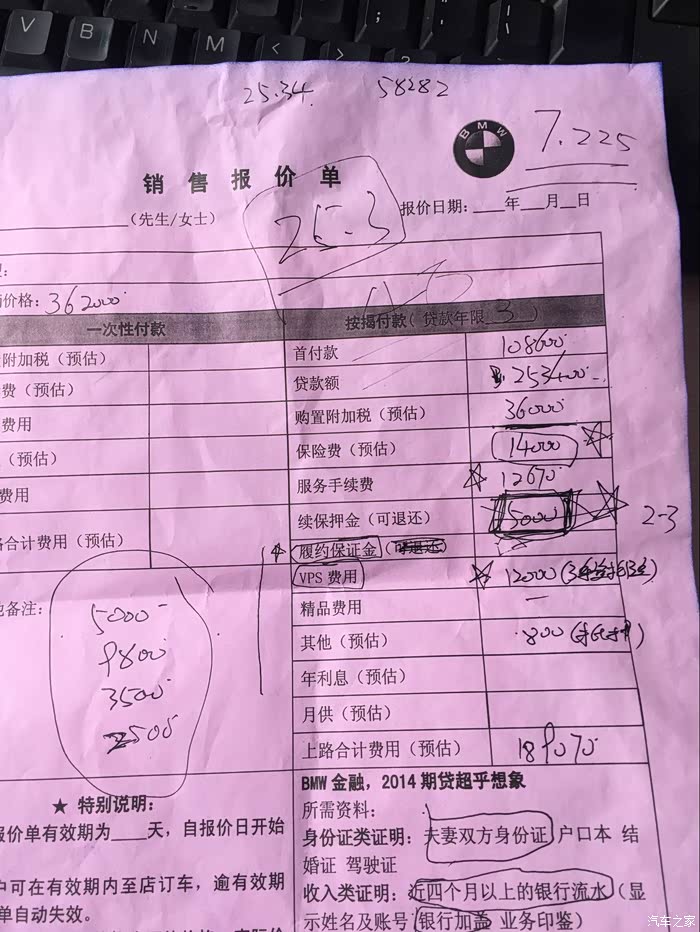 V B N M < > ? ;
25.34. 58282
BMW
7.225
销售报价单
25.3
(先生/女士)
报价日期:___年___月__日
价格: 362000
一次性付款
按揭付款(贷款年限 3 )
附加税(预估)
首付款 108600
费(预估)
贷款额 253400
费用
购置附加税(预估) 36000
(预估)
保险费(预估) 14000
费用
服务手续费 12670
续保押金(可退还) 5000 2-3
合计费用(预估)
履约保证金(可退还)
VPS 费用 12000
备注:
精品费用 —
5000
其他(预估) 800
9800
年利息(预估)
3500
月供(预估)
2500
上路合计费用(预估) 189070
★ 特别说明:
BMW 金融,2014 期贷超乎想象
报价单有效期为____天,自报价日开始
所需资料:
身份证类证明:夫妻双方身份证 户口本 结
婚证 驾驶证
户可在有效期内至店订车,逾有效期
收入类证明:近四个月以上的银行流水(显
单自动失效。
示姓名及账号 银行加盖 业务印鉴)
汽车之家